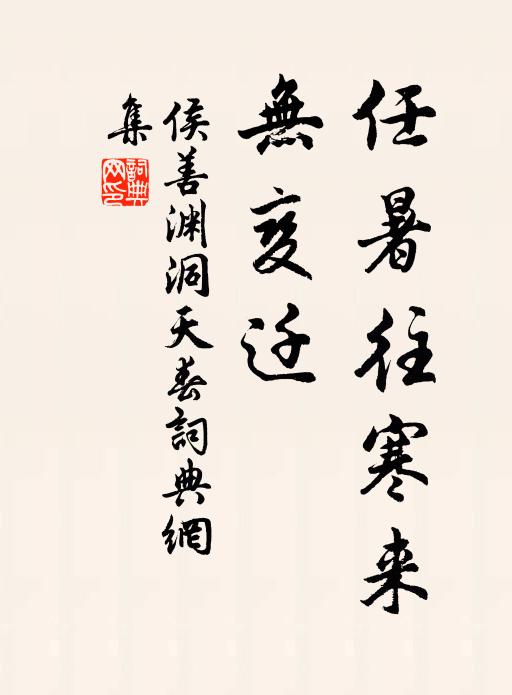 任暑往寒来
無变迁
侯善渊洞天春詞典網
集
詞典網印